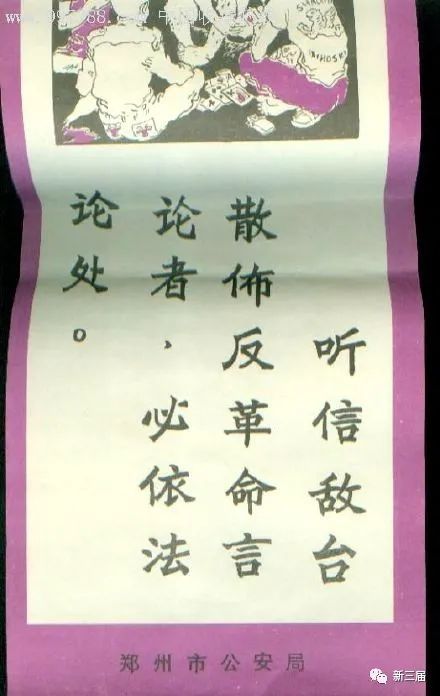 听信敌台
散佈反革命言
论者，必依法
论处。
郑州市公安局
新三届